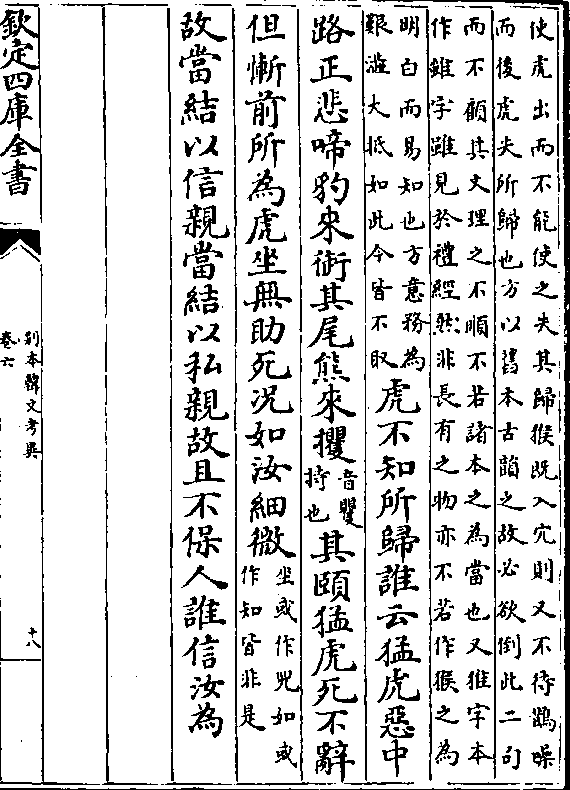 使虎出而不能使之失其歸猴既入穴則又不待鵲噪
而後虎失所歸也方以舊本古韻之故必欲倒此二句
而不顧其文理之不順不若諸本之為當也又猚字本
作雖字雖見於禮經然非長有之物亦不若作猴之為
明白而易知也方意務為
艱澁大抵如此今皆不取
虎不知所歸誰云猛虎惡中
路正悲啼豹來銜其尾熊來攫
音矍
持也
其頤猛虎死不辭
但慚前所為虎坐無助死況如汝細微
坐或作兕如或
作知皆非是
故當結以信親當結以私親故且不保人誰信汝為
欽定四庫全書
別本韓文考異
卷六
十八